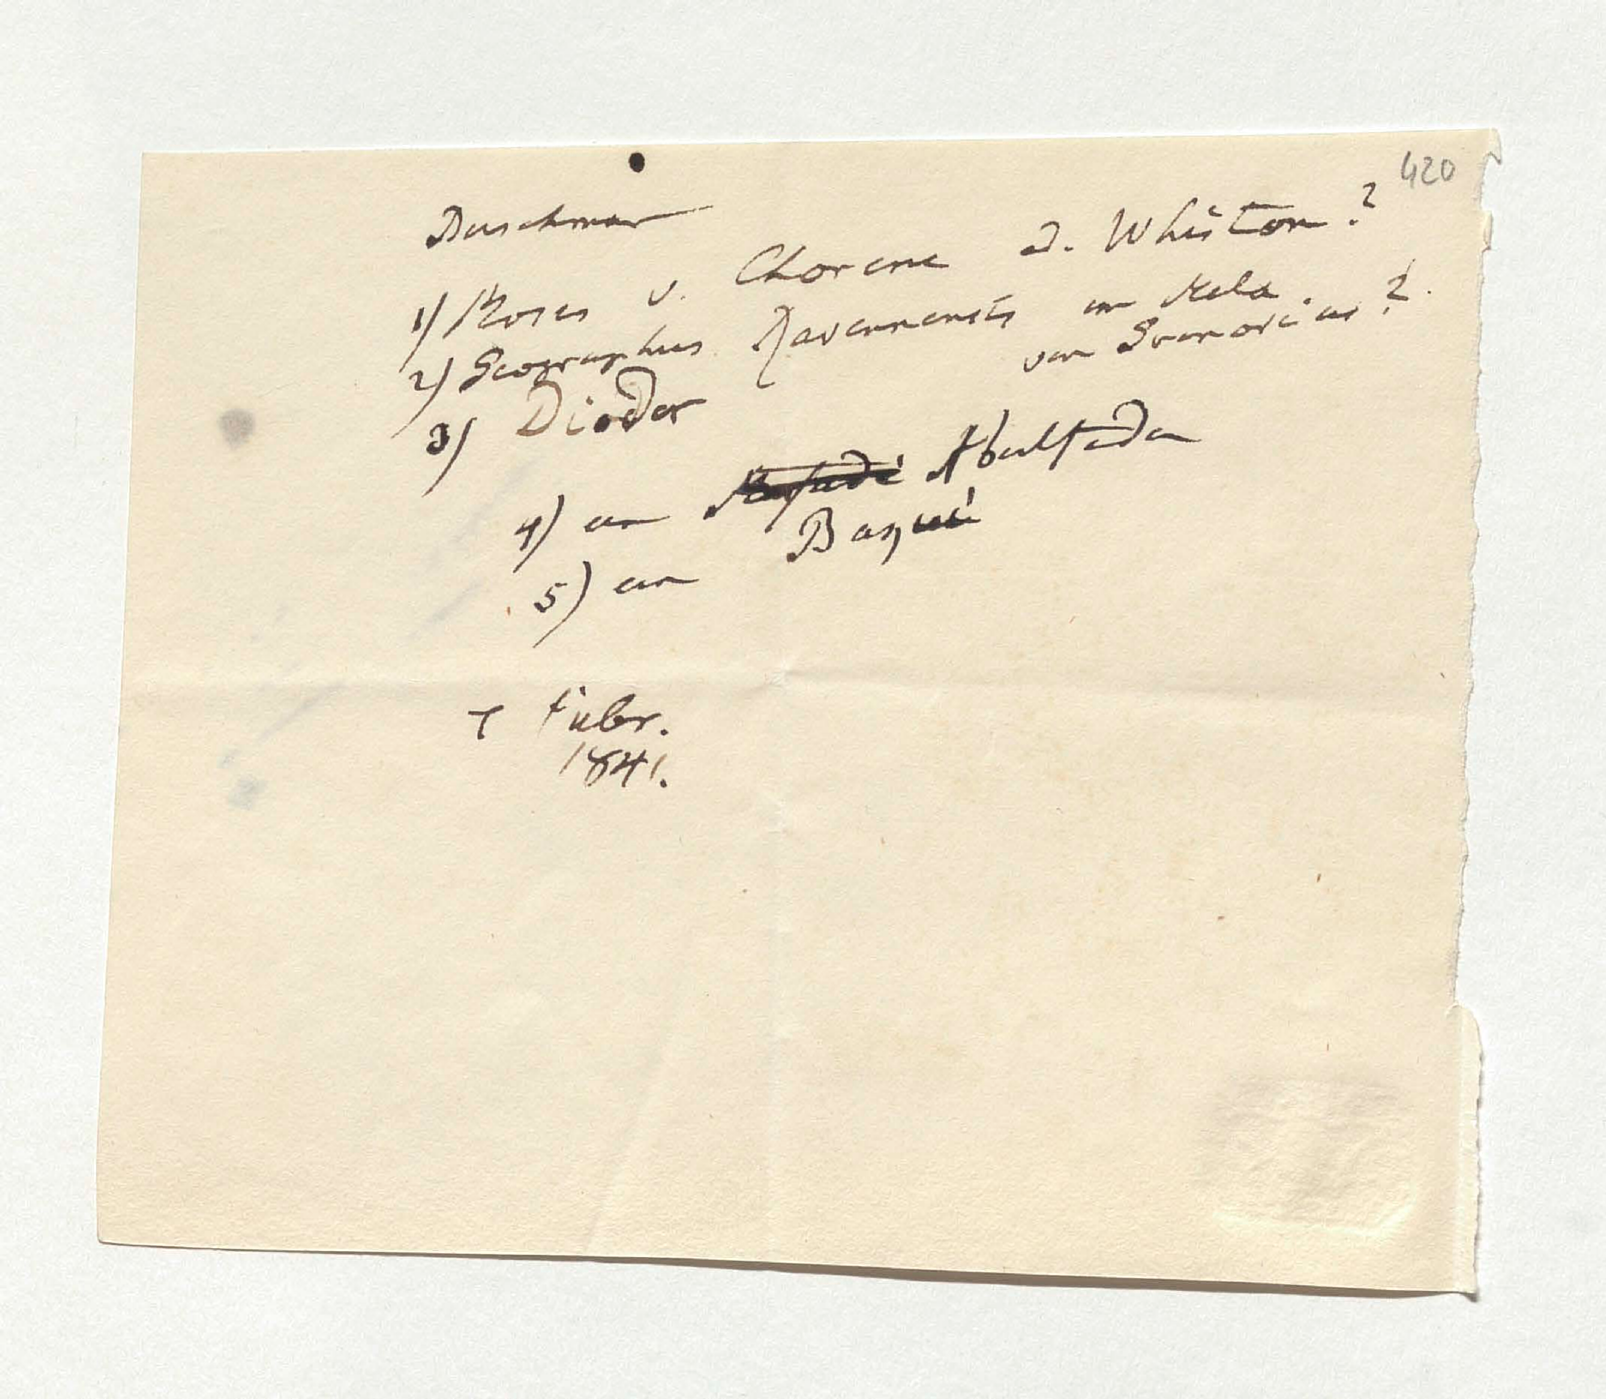 420
Buschmann
1) Moses v. Chorene d. Whiston?
2) Geographus Ravennensis im Mela
von Gronovius?
3) Diodor
4) an Abulfeda
5) an Baqui
7 Febr.
1841.